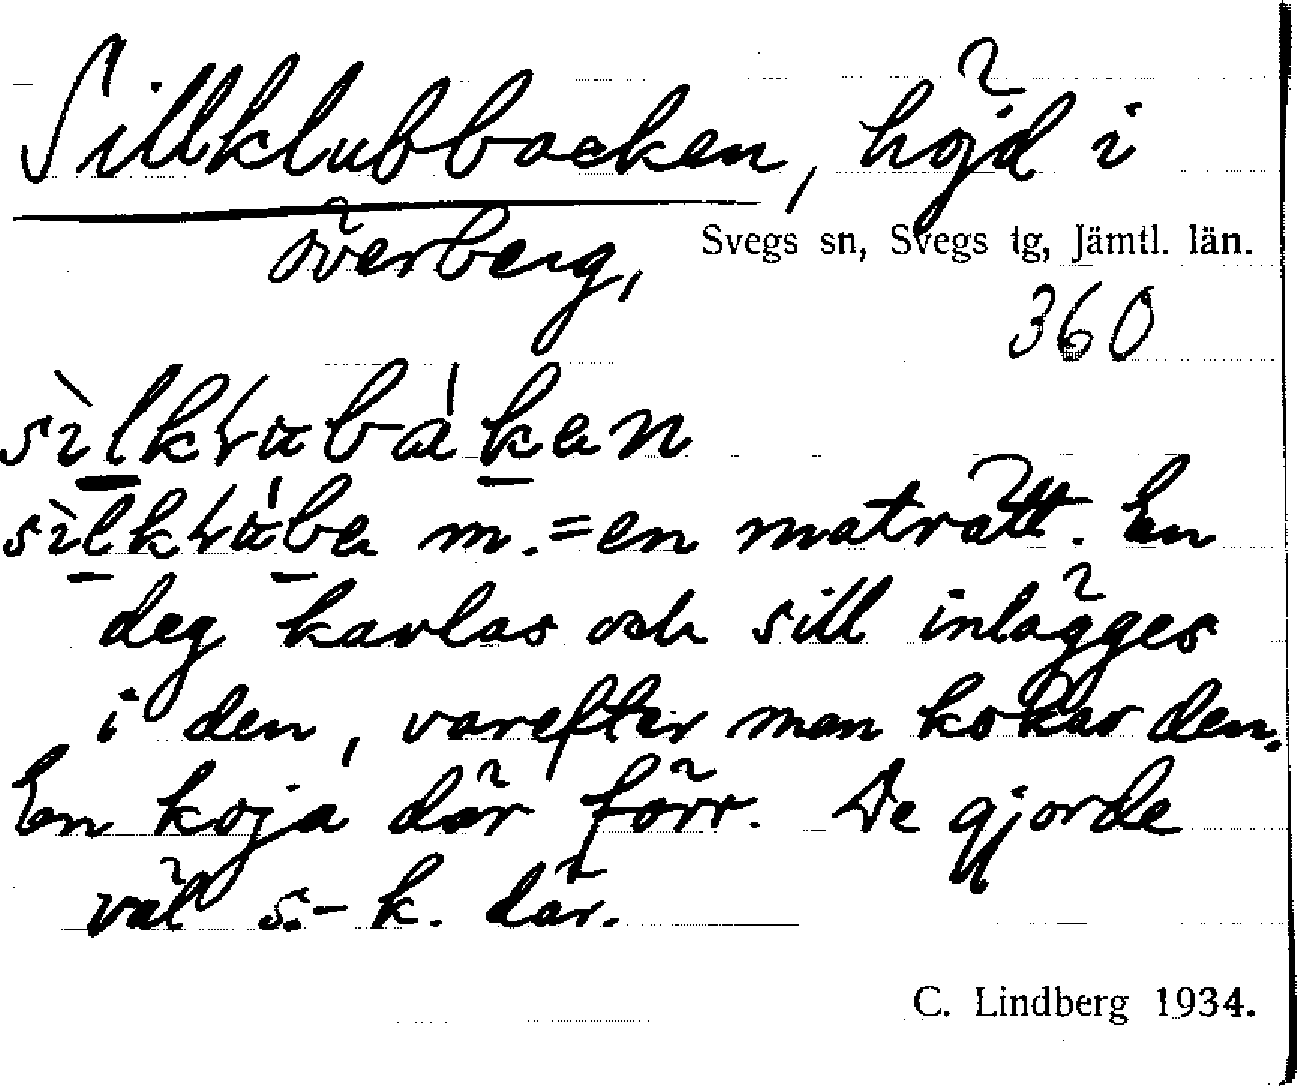 Sillklubbacken, höjd i
Överberg, Svegs sn, Svegs tg, Jämtl. län.
360
En
m. = en maträtt. En
deg kavlas och sill inlägges
i den, varefter man kokar den.
En koja där förr. De gjorde
väl s.-k. där.
C. Lindberg 1934.